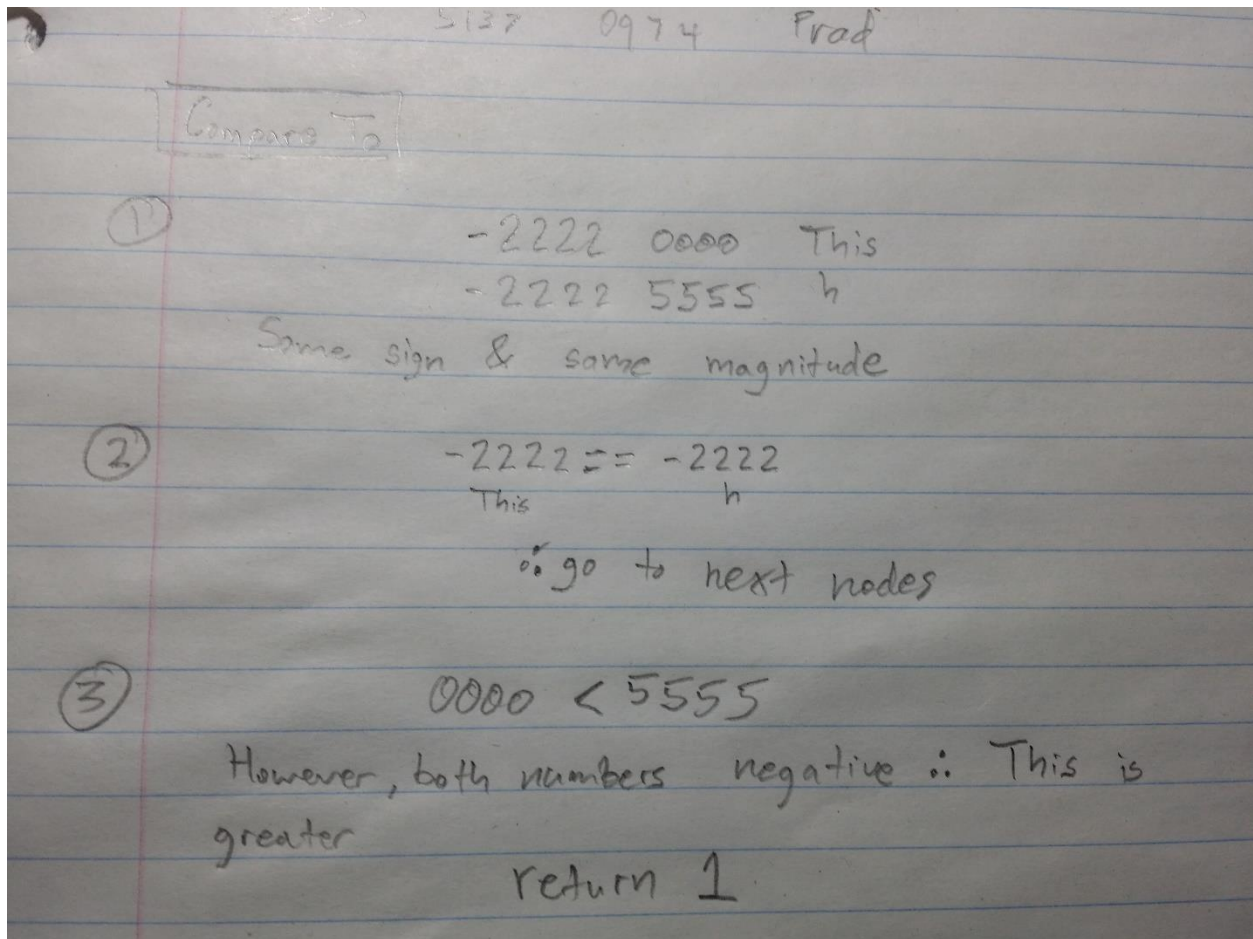 5137 0974 Prod
Compare To
1 -2222 0000 This
-2222 5555 h
Same sign & same magnitude
2 -2222 == -2222
This h
∴ go to next nodes
3 0000 < 5555
However, both numbers negative ∴ This is
greater
return 1